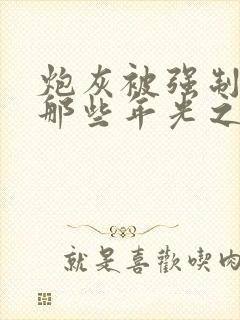 炮灰被强制
那些年光之
就是喜歡喫肉